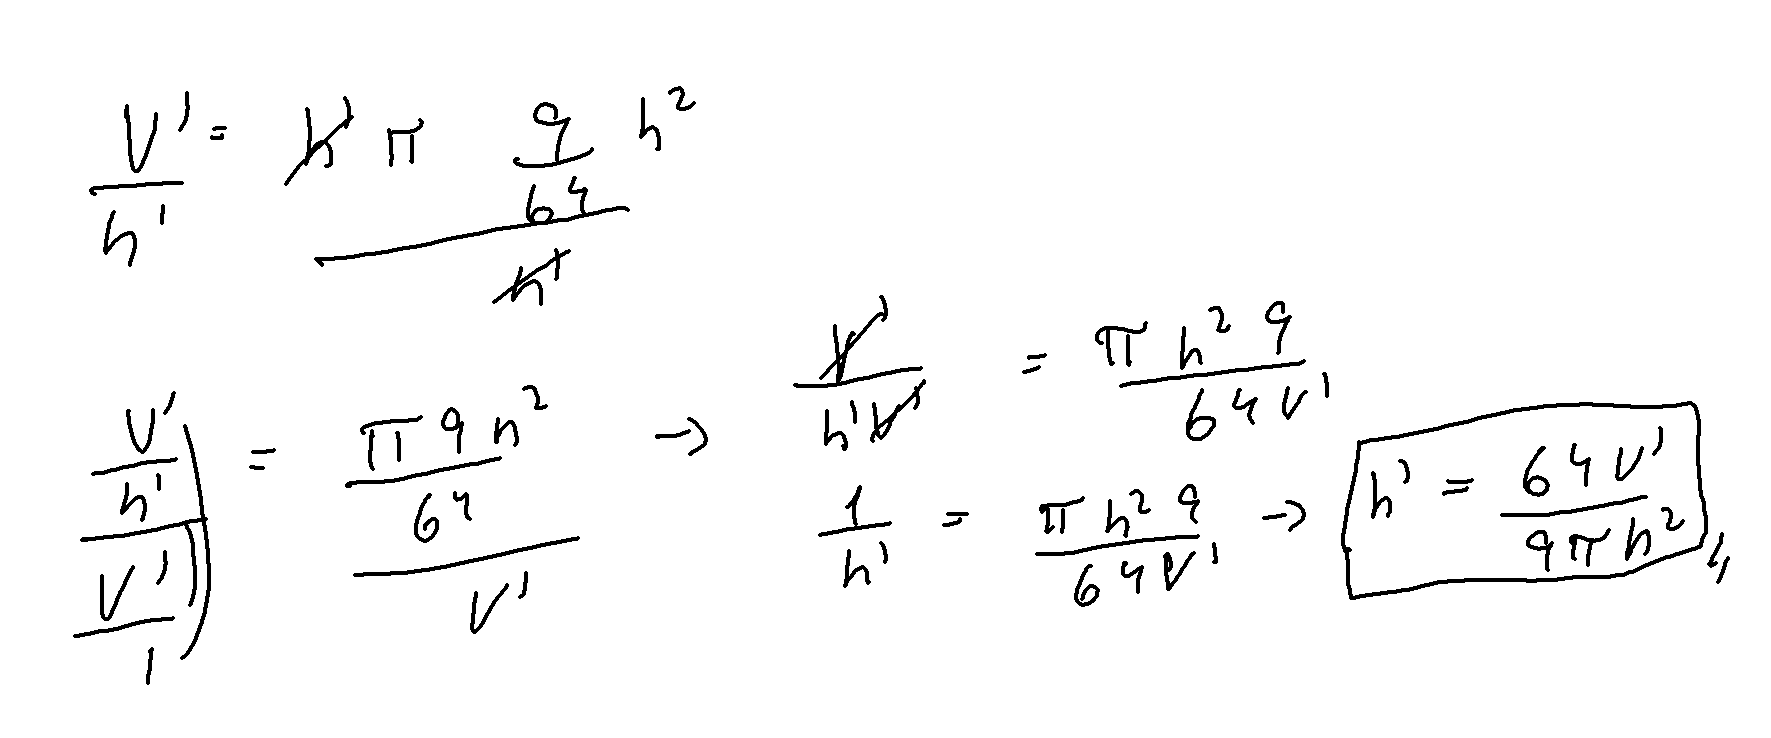 V'/h' = h' π 9/64 h² / h'
V'/h' / V'/1 = π 9 h² / 64 / V' → V'/h'V' = π h² 9 / 64 V'
1/h' = π h² 9 / 64 V' → h' = 64 V' / 9 π h² //